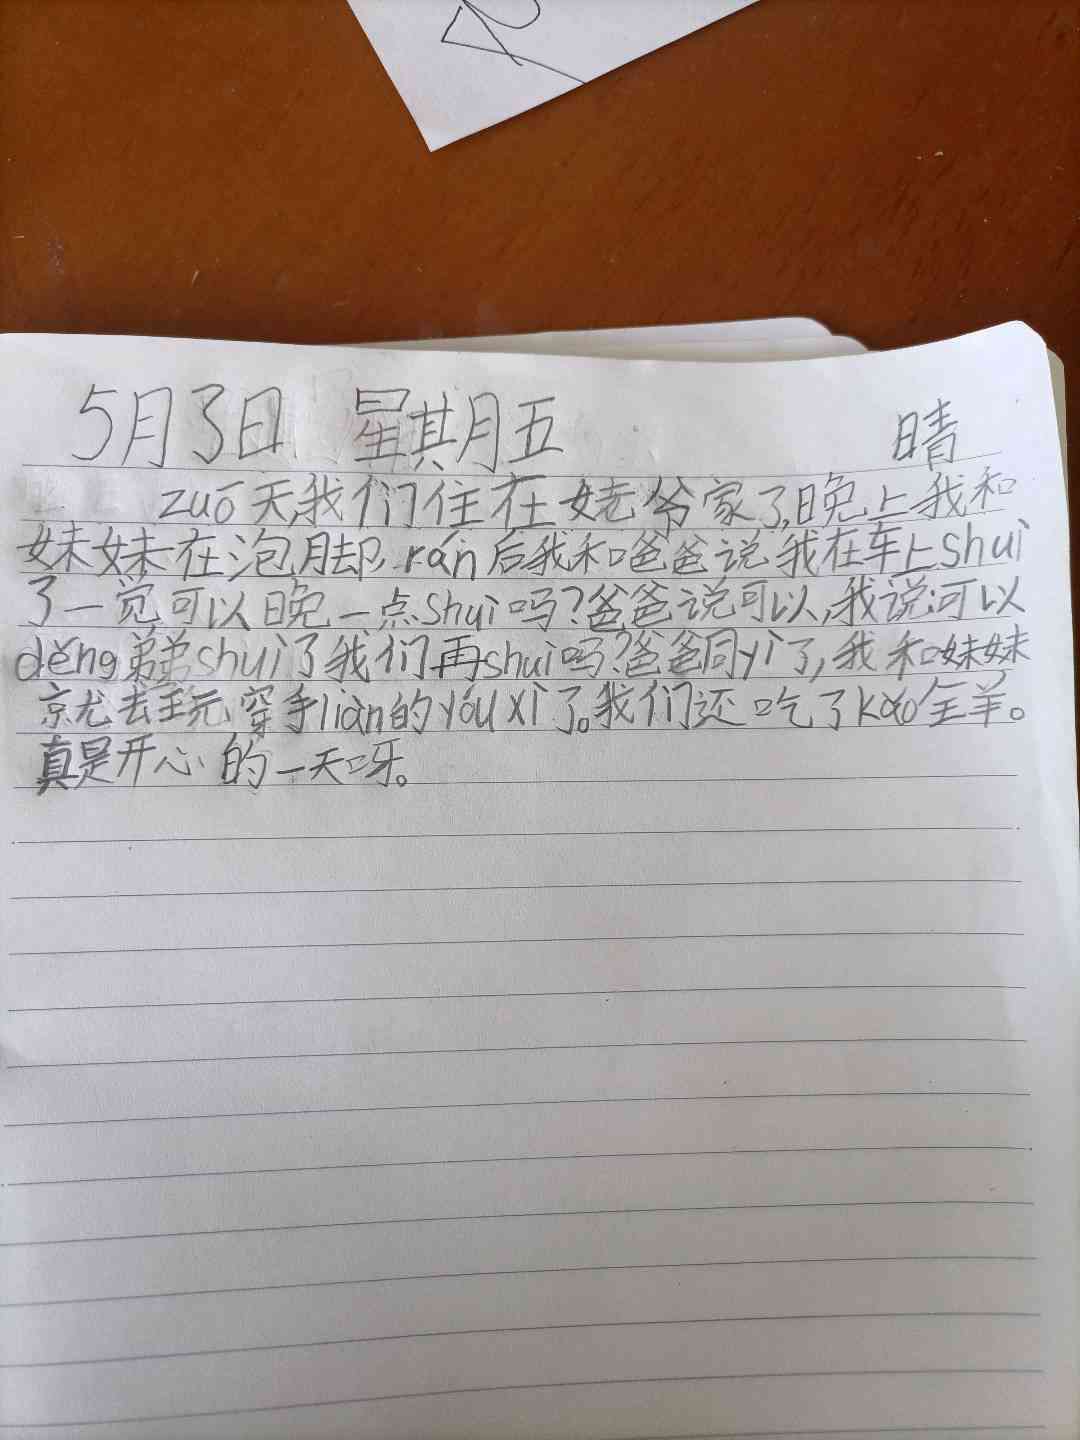 5月3日 星期五 晴
zuó天,我们住在姥爷家了,晚上我和
妹妹在泡脚,rán后我和爸爸说我在车上shuì
了一觉可以晚一点shuì吗?爸爸说可以,我说可以
děng弟弟shuì了我们再shuì吗?爸爸同yì了,我和妹妹
就去玩穿手liàn的yóu xì了。我们还吃了kǎo全羊。
真是开心的一天呀。